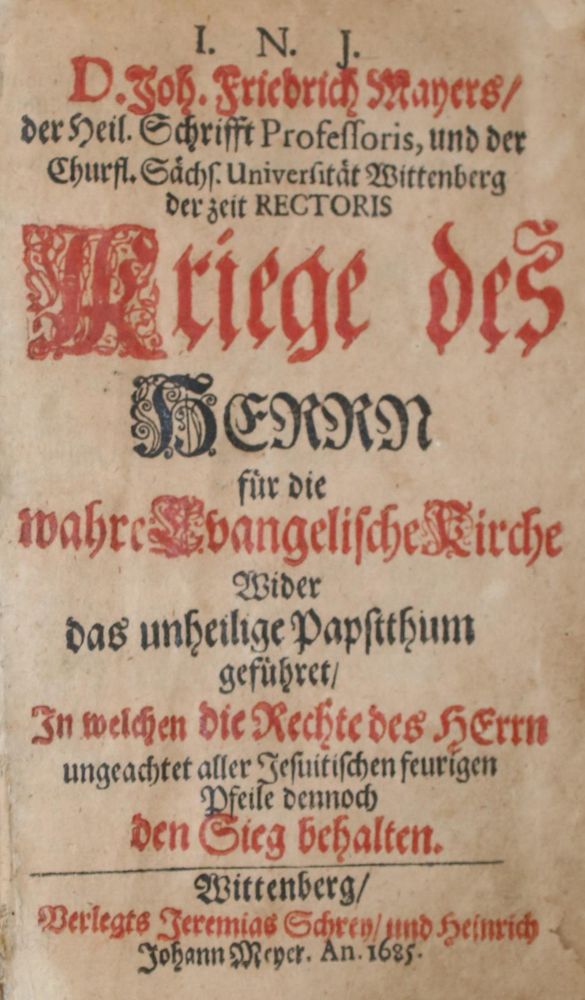 I. N. J.
D. Joh. Friedrich Mayers/
der Heil. Schrifft Professoris, und der
Churfl. Sächs. Universität Wittenberg
der zeit RECTORIS
Kriege des
HERRN
für die
wahre Evangelische Kirche
Wider
das unheilige Papstthum
geführet/
In welchen die Rechte des HErrn
ungeachtet aller Jesuitischen feurigen
Pfeile dennoch
den Sieg behalten.
Wittenberg/
Verlegts Jeremias Schrey/ und Heinrich
Johann Meyer. An. 1685.